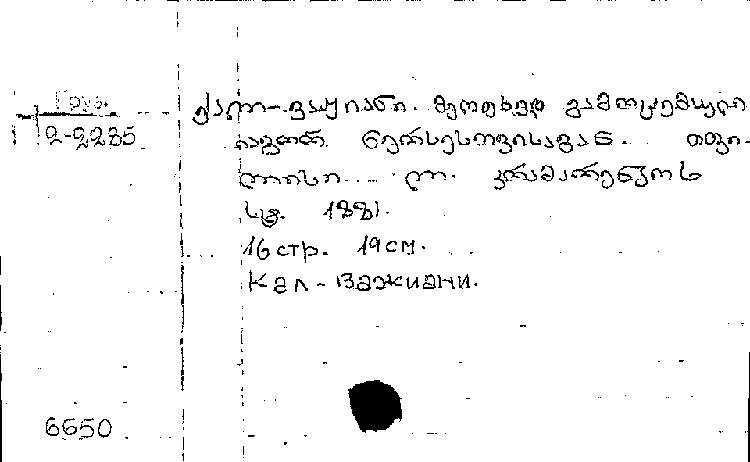 Груз.
2-2235
ქალ-ვაჟიანი. მეოთხედ გამოცემული
იაგორ ნერსესოვისაგან. თფი-
ლისი. ლ. კრამარენკოს
სტ. 1881.
16 стр. 19 см.
Кал-Важиани.
6650